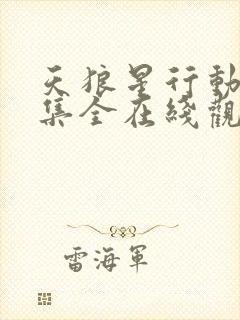 天狼星行動
集全在綫觀
雷海軍